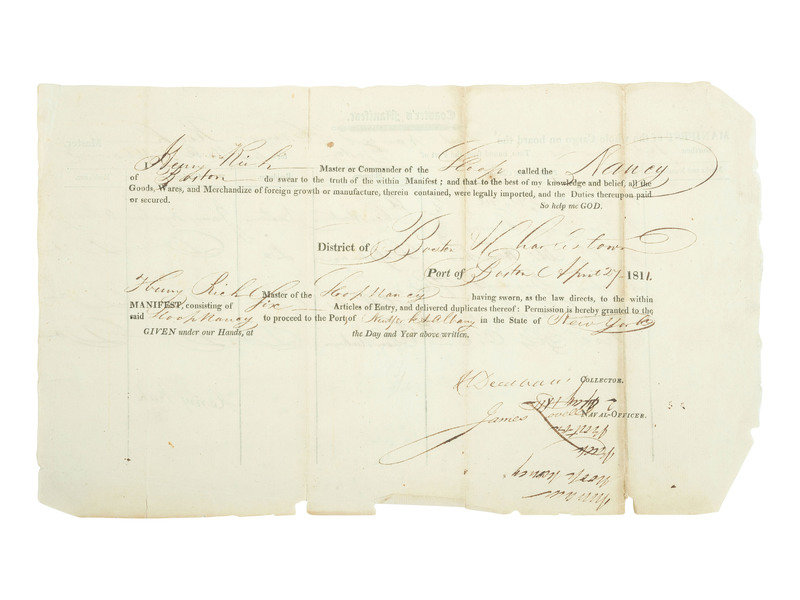 Coaster's Manifest.
I Henry Rich Master or Commander of the Sloop called the Nancy
of Boston do swear to the truth of the within Manifest; and that to the best of my knowledge and belief, all the
Goods, Wares, and Merchandize of foreign growth or manufacture, therein contained, were legally imported, and the Duties thereupon paid
or secured. So help me GOD.
District of Boston & Charlestown
Port of Boston April 27 1811.
Henry Rich Master of the Sloop Nancy having sworn, as the law directs, to the within
MANIFEST, consisting of Six Articles of Entry, and delivered duplicates thereof: Permission is hereby granted to the
said Sloop Nancy to proceed to the Port of & Albany in the State of New York
GIVEN under our Hands, at the Day and Year above written.
COLLECTOR.
James Lovell NAVAL-OFFICER.
Rich
Sloop Nancy